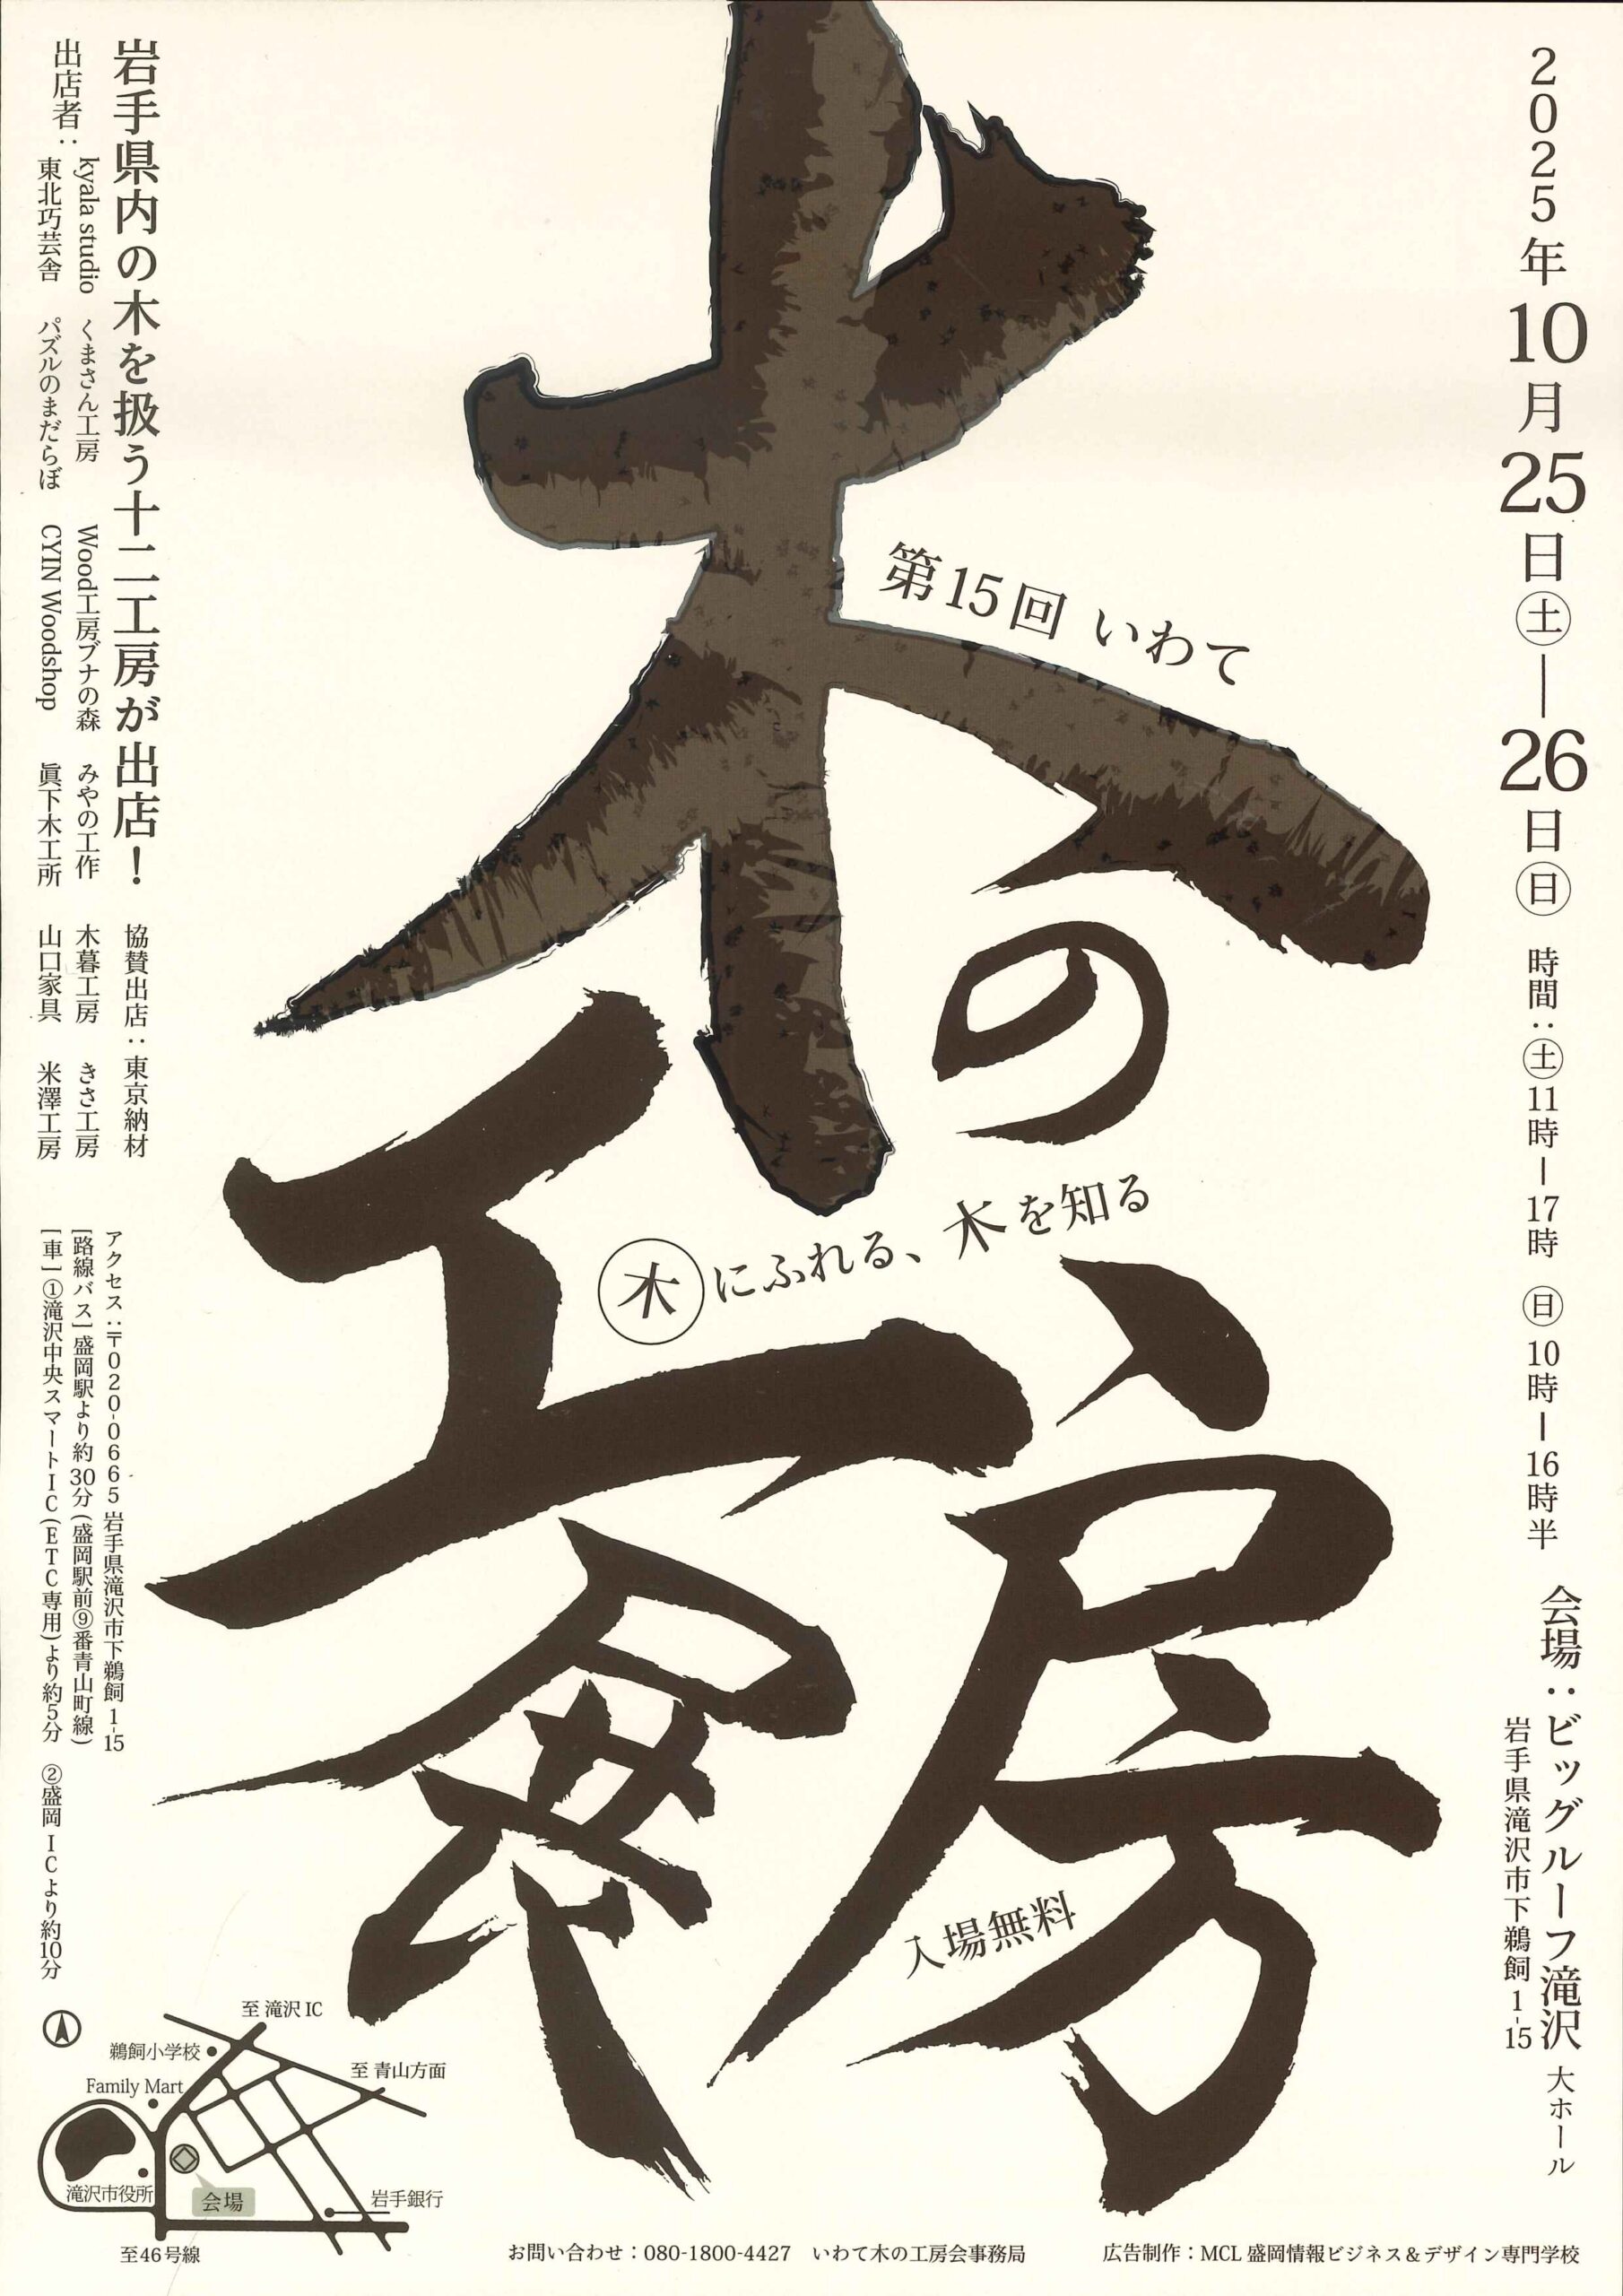 2025年10月25日㊏―26日㊐
時間：㊏11時―17時 ㊐10時―16時半
会場：ビッグルーフ滝沢 大ホール
岩手県滝沢市下鵜飼1-15
第15回 いわて
木の工房展
木にふれる、木を知る
入場無料
岩手県内の木を扱う十二工房が出店！
協賛出店：東京納材
出店者：
kyala studio くまさん工房 Wood工房ブナの森 みやの工作 木暮工房 きさ工房
東北巧芸舎 パズルのまだらぼ CYIN Woodshop 眞下木工所 山口家具 米澤工房
アクセス：〒020-0665 岩手県滝沢市下鵜飼1-15
[路線バス] 盛岡駅より約30分（盛岡駅前⑨番青山町線）
[車] ①滝沢中央スマートIC（ETC専用）より約5分 ②盛岡ICより約10分
至 滝沢 IC
鵜飼小学校
至 青山方面
Family Mart
滝沢市役所
会場
岩手銀行
至46号線
お問い合わせ：080-1800-4427 いわて木の工房会事務局
広告制作：MCL 盛岡情報ビジネス＆デザイン専門学校